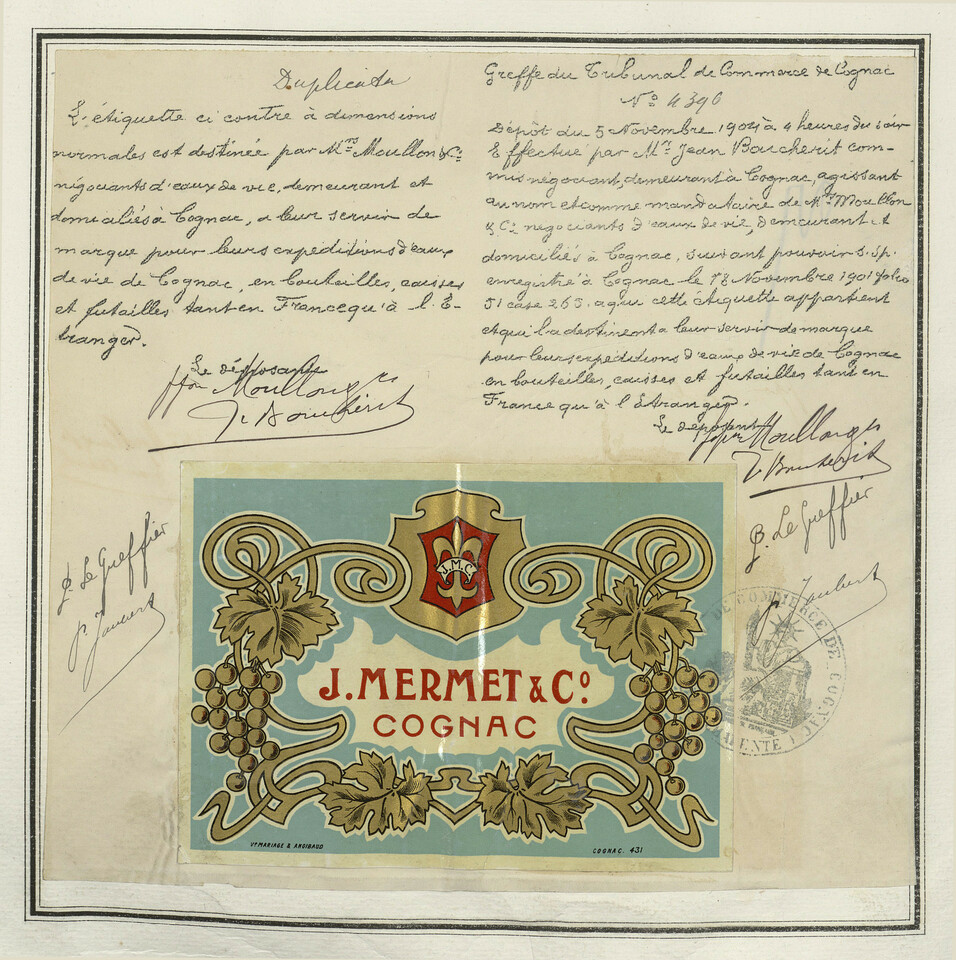 Duplicata
L'étiquette ci contre à dimensions
normales est destinée par Mrs Moullon & Cie
négociants d'eaux de vie, demeurant et
domiciliés à Cognac, a leur servir de
marque pour leurs expéditions d'eaux
de vie de Cognac, en bouteilles, caisses
et futailles tant en France qu'à l'É-
tranger.
Le déposant
ppon Moullon & Cie
J. Boucherit
P. Le Greffier
P. Jaubert
Greffe du Tribunal de Commerce de Cognac
No 4396
Dépôt du 5 Novembre 1904 à 4 heures du soir
Effectué par Mr Jean Boucherit com-
mis négociant, demeurant à Cognac, agissant
au nom et comme mandataire de Mrs Moullon
& Cie négociants d'eaux de vie, demeurant et
domiciliés à Cognac, suivant pouvoir s. sp.
enregistré à Cognac le 18 Novembre 1901 folio
51 case 265, a qui cette étiquette appartient
et qui l'a destinent a leur servir de marque
pour leurs expéditions d'eaux de vie de Cognac
en bouteilles, caisses et futailles tant en
France qu'à l'Étranger.
Le déposant
ppon Moullon & Cie
J. Boucherit
P. Le Greffier
P. Jaubert
DE COMMERCE DE COGNAC
J.M.C.
J. MERMET & Co.
COGNAC
Ve MARIAGE & ANGIBAUD
COGNAC. 431